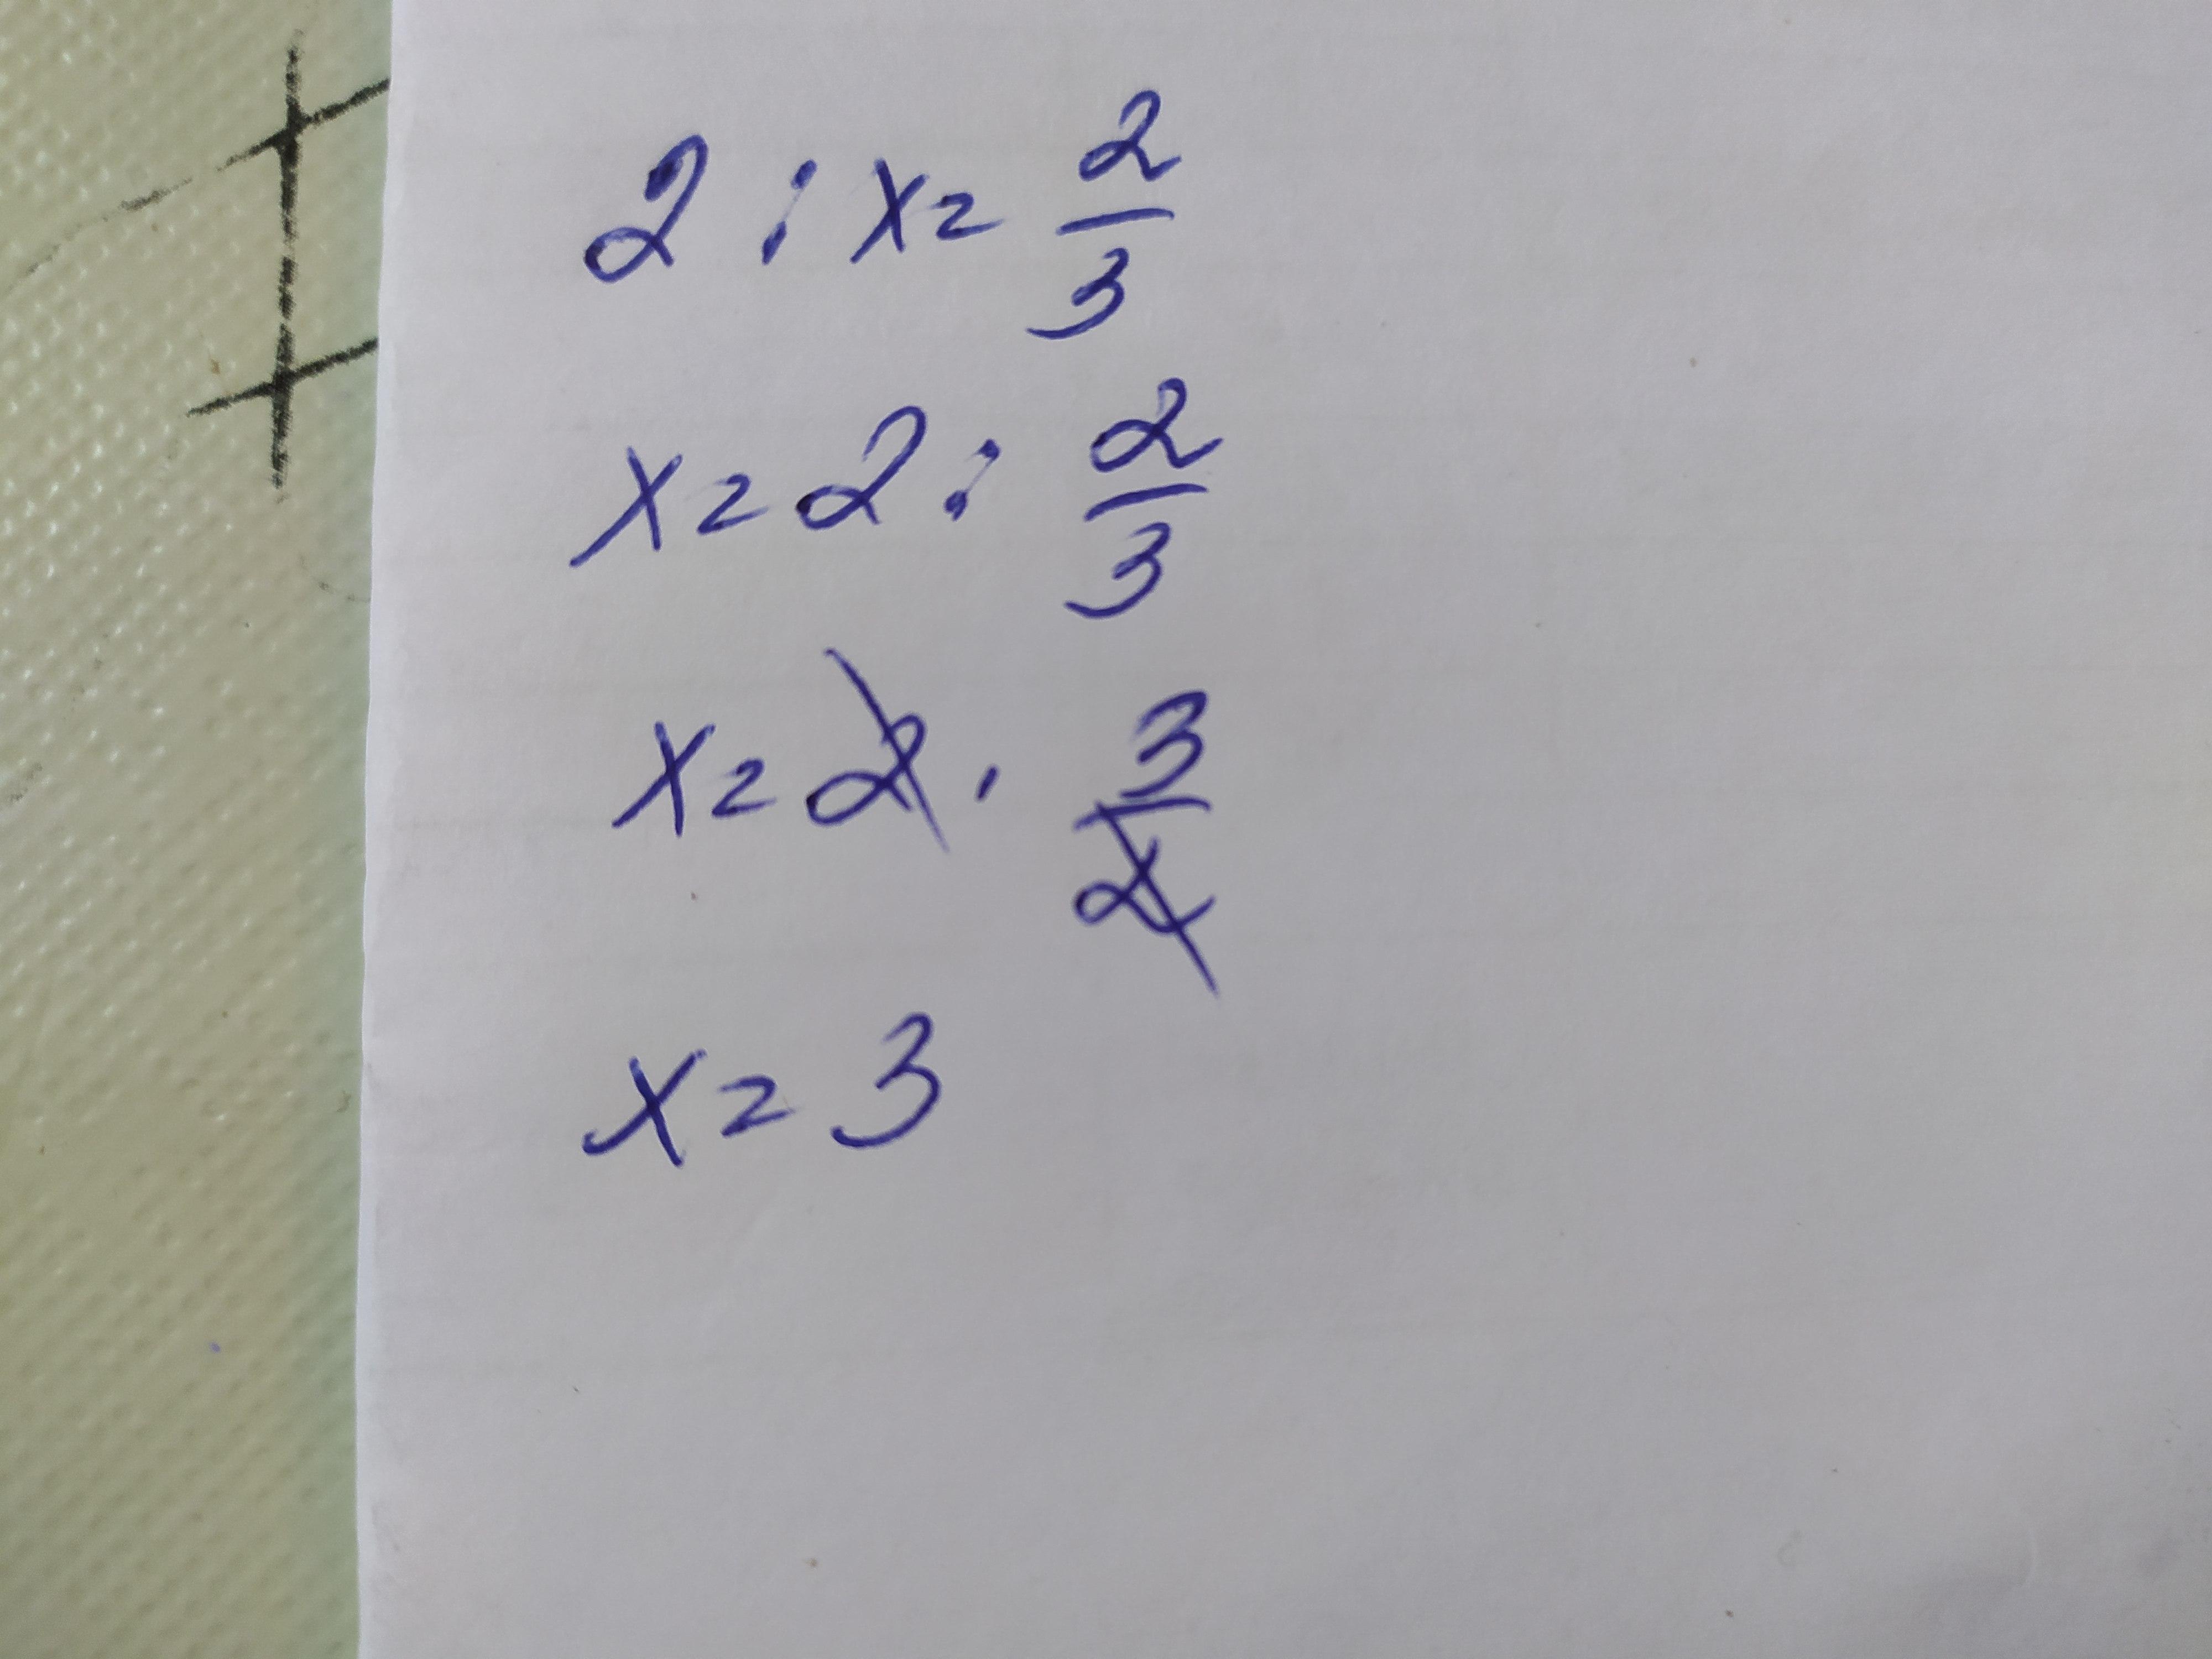 2 : x = 2/3
x = 2 : 2/3
x = 2 · 3/2
x = 3